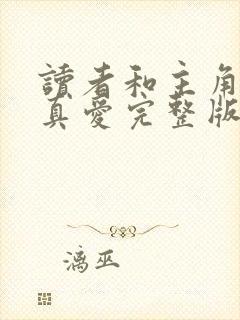 讀者和主角
真愛完整版
漓巫